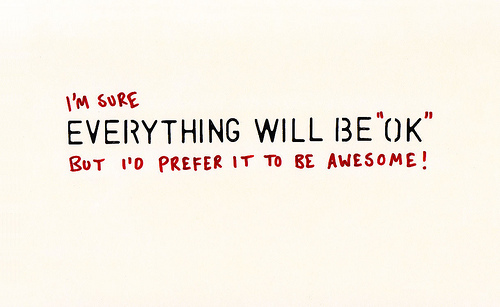 I'M SURE
EVERYTHING WILL BE "OK"
BUT I'D PREFER IT TO BE AWESOME!